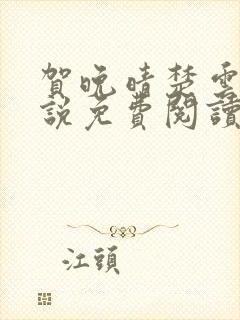 賀晚晴楚雲
說免費閱讀
江頭